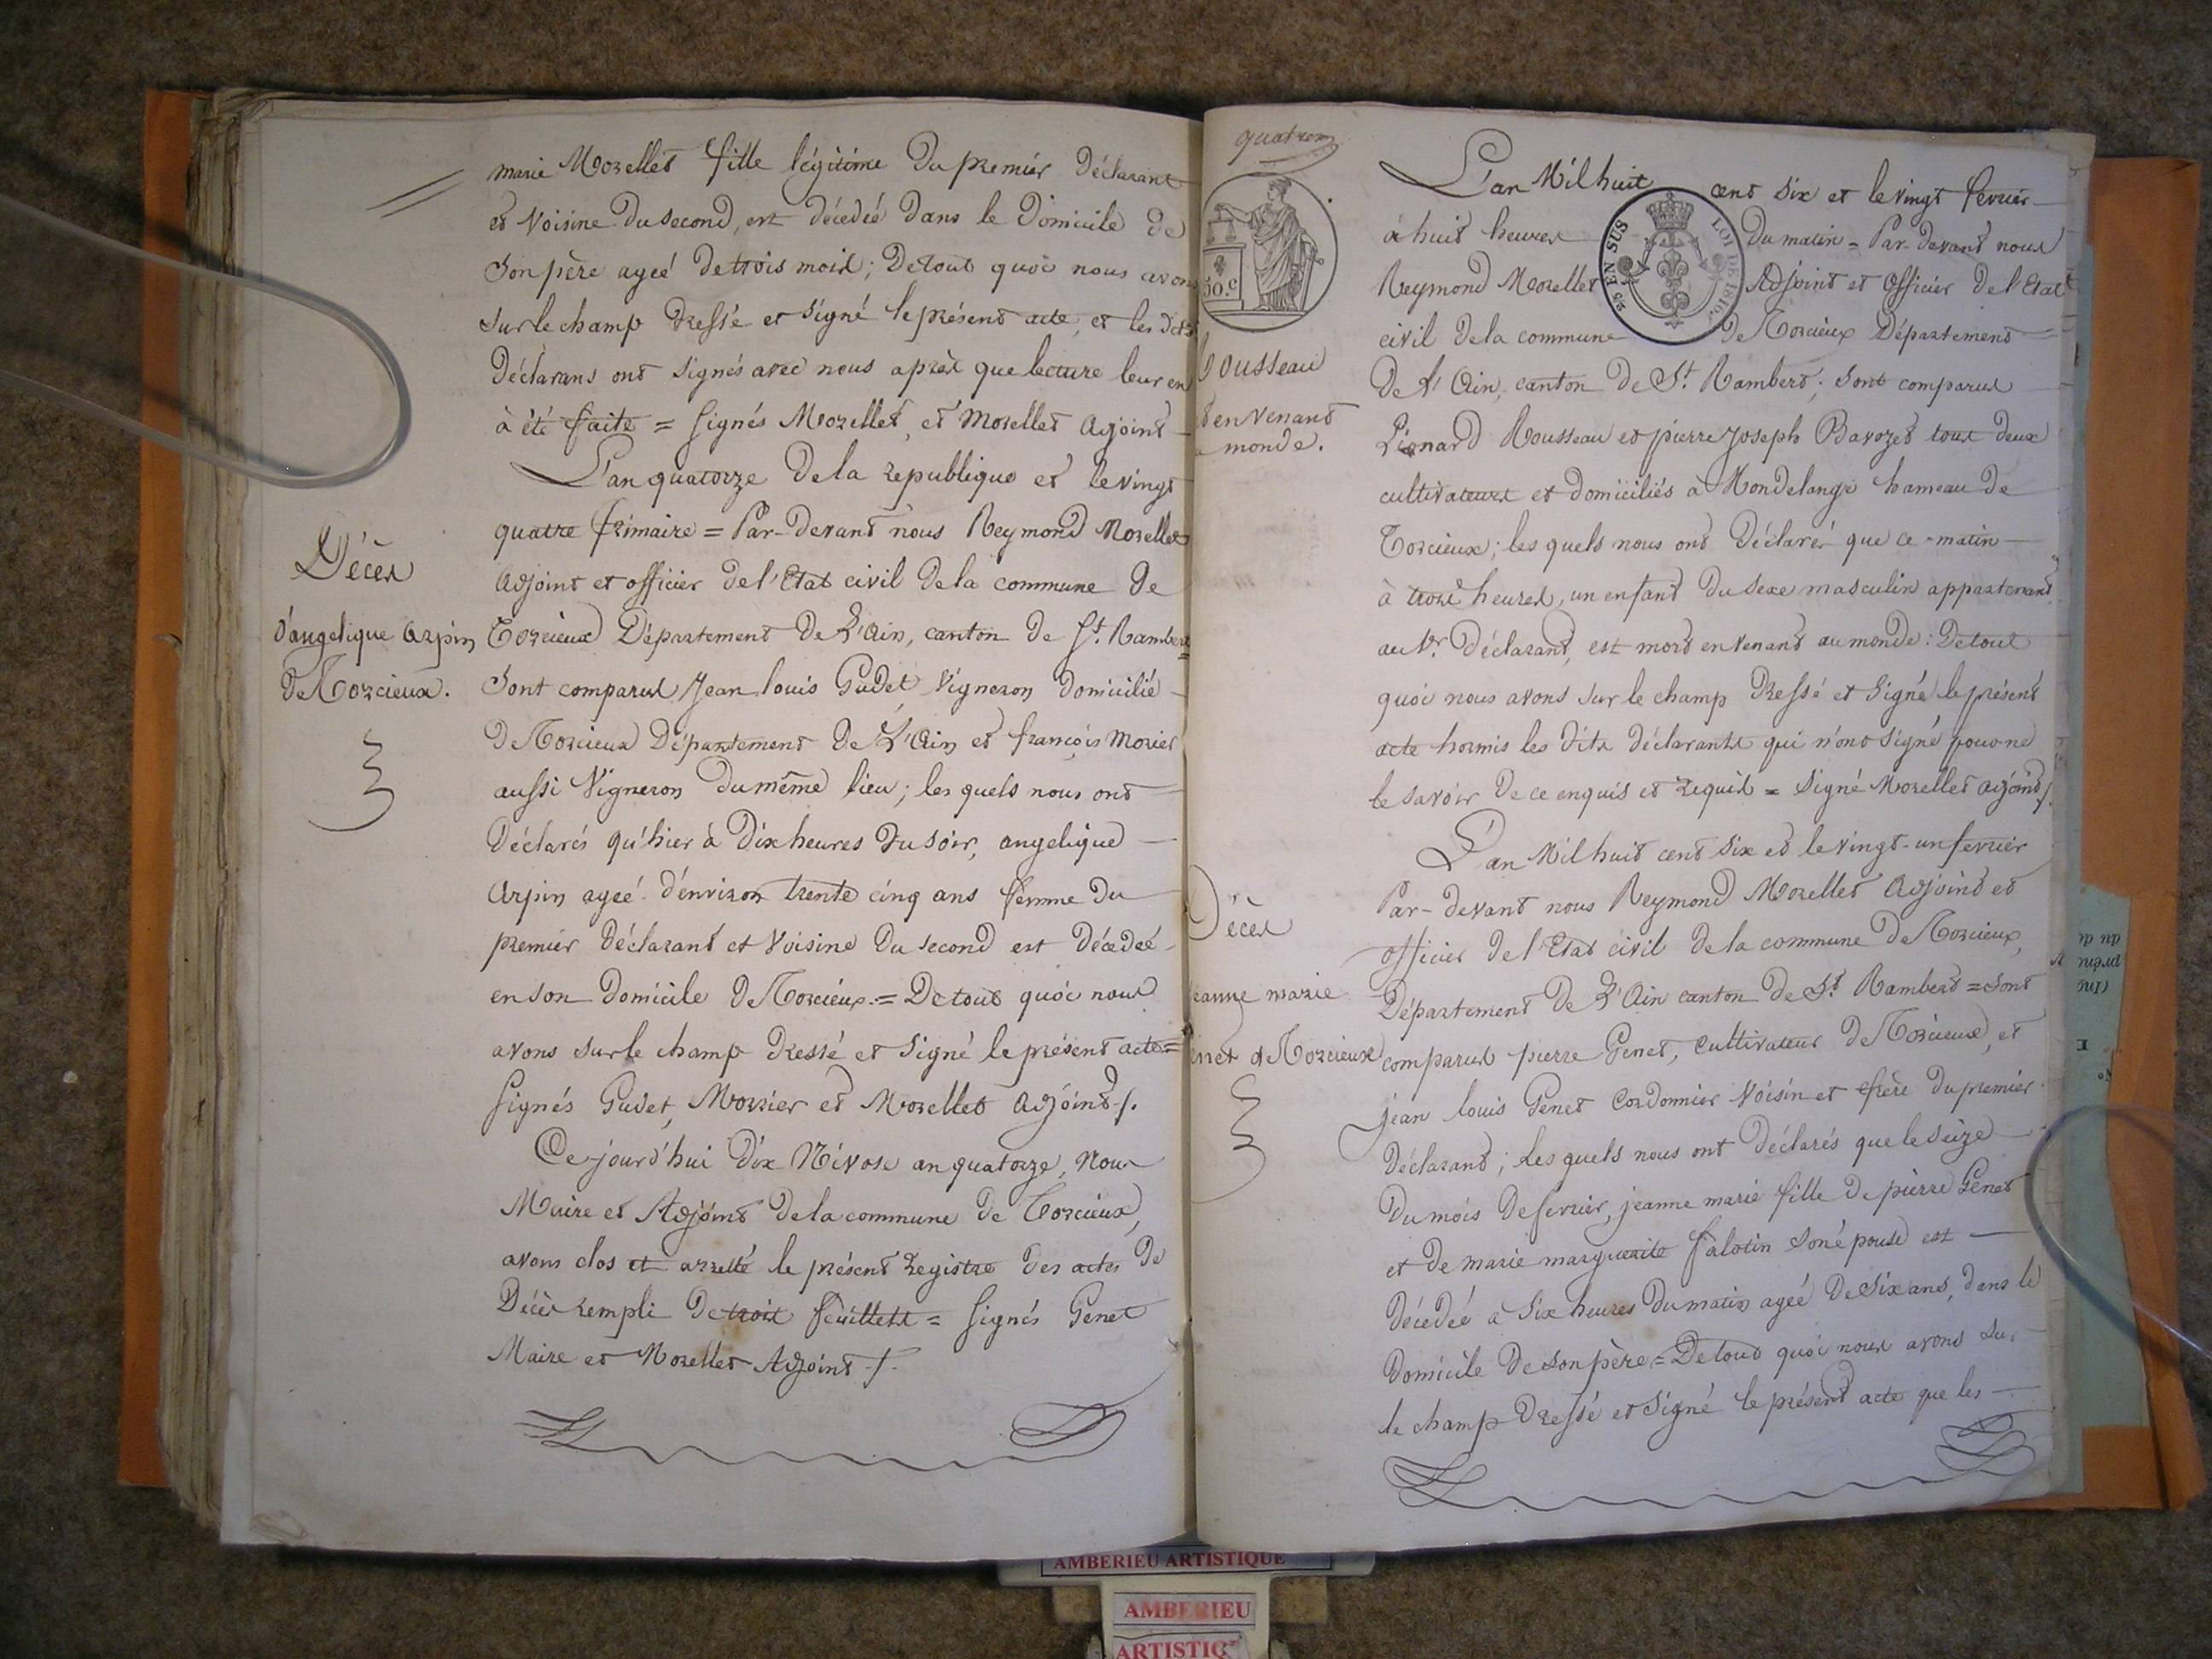 marie Morellet fille légitime du premier Déclarant
et Voisine du second, est décedeé dans le Domicile de
Son père ageé de trois mois; De tout quoi nous avons
sur le champ dressé et signé le présent acte, et les dits
Déclarans ont signés avec nous après que lecture leur en
à été faite = signés Morellet, et Morellet Adjoint
L'an quatorze de la republique et le vingt
quatre frimaire = Par-devant nous Reymond Morellet
Adjoint et officier de l'Etat civil de la commune de
Torcieux Département de L'Ain, canton de St. Rambert =
Sont comparus Jean louis Gudet Vigneron domicilié
de Torcieux Département de L'Ain et françois Morier
aussi Vigneron du même lieu; les quels nous ont
Déclarés qu'hier à Dix heures du soir, angelique
Arpin ageé d'environ trente cinq ans femme du
premier Déclarant et Voisine du second est décedeé
en son domicile de Torcieux. = De tout quoi nous
avons sur le champ dressé et signé le présent acte =
signés Gudet, Morrier et Morellet Adjoint ./.
Ce jourd'hui dix Nivose an quatorze, Nous
Maire et Adjoint de la commune de Torcieux,
avons clos et arretté le présent registre des actes de
Décès rempli de trois feuillets = signés Genet
Maire et Morellet Adjoint ./.
Décès
d'angelique Arpin
de Torcieux.
quatrem
50.c
25 EN SUS
LOI DE 1816
ousseau
en Venant
monde.
L'an Mil huit cent six et le vingt fevrier
à huit heures du matin = Par-devant nous
Reymond Morellet Adjoint et Officier de l'Etat
civil de la commune de Torcieux Département
de L'Ain, canton de St. Rambert; sont comparus
Léonard Rousseau et pierre Joseph Bavozet tous deux
cultivateurs et domiciliés à Mondelange hameau de
Torcieux; les quels nous ont déclarés que ce-matin
à trois heures, un enfant du sexe masculin appartenant
au 1r. déclarant, est mort en Venant au monde: De tout
quoi nous avons sur le champ dressé et signé le présent
acte hormis les dits déclarants qui n'ont signé pour ne
le savoir de ce enquis et requis = signé Morellet adjoint ./.
L'an Mil huit cent six et le vingt-un fevrier
Par-devant nous Reymond Morellet Adjoint et
officier de l'Etat civil de la commune de Torcieux,
Département de L'Ain canton de St. Rambert = sont
comparus pierre Genet, Cultivateur de Torcieux, et
jean louis Genet Cordonnier Voisin et frère du premier
Déclarant; Les quels nous ont déclarés que le seize
du mois de fevrier, jeanne marie fille de pierre Genet
et de marie marguerite falotin son épouse est
Décedeé à six heures du matin ageé de six ans, dans le
Domicile de son père = De tout quoi nous avons sur
le champ dressé et signé le présent acte que les
Décès
eanne marie
enet de Torcieux
AMBERIEU ARTISTIQUE
AMBERIEU
ARTISTIQ